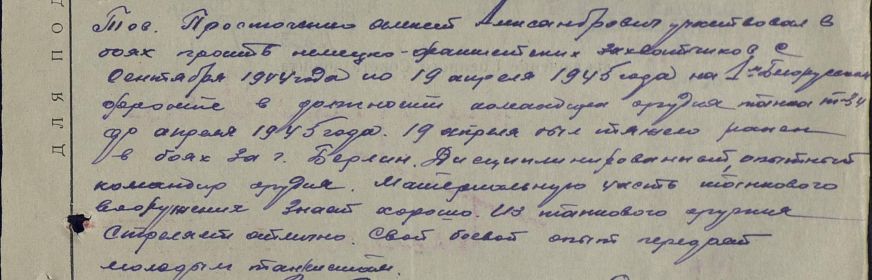 Тов. Просточенко Алексей Александрович участвовал в
боях против немецко-фашистских захватчиков с
Сентября 1944 года по 19 апреля 1945 года на 1м Белорусском
фронте в должности командира орудия танка т-34
до апреля 1945 года. 19 апреля был тяжело ранен
в боях за г. Берлин. Дисциплинированный, опытный
командир орудия. Материальную часть танкового
вооружения знает хорошо. Из танкового орудия
Стреляет отлично. Свой боевой опыт передает
молодым танкистам.
ДЛЯ ПОД